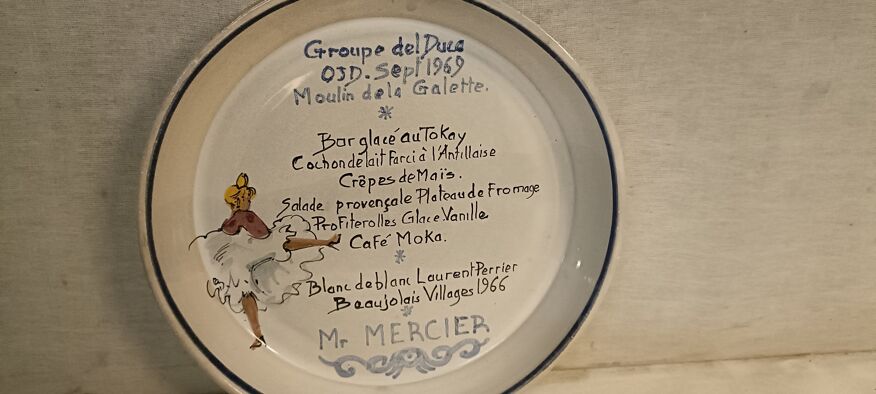 Groupe del Duca
OJD. Sept 1969
Moulin de la Galette.
Bar glacé au Tokay
Cochon de lait Farci à l'Antillaise
Crêpes de Maïs.
Salade provençale Plateau de Fromage
ProFiterolles Glace Vanille
CaFé Moka.
Blanc de blanc Laurent Perrier
Beaujolais Villages 1966
Mr MERCIER